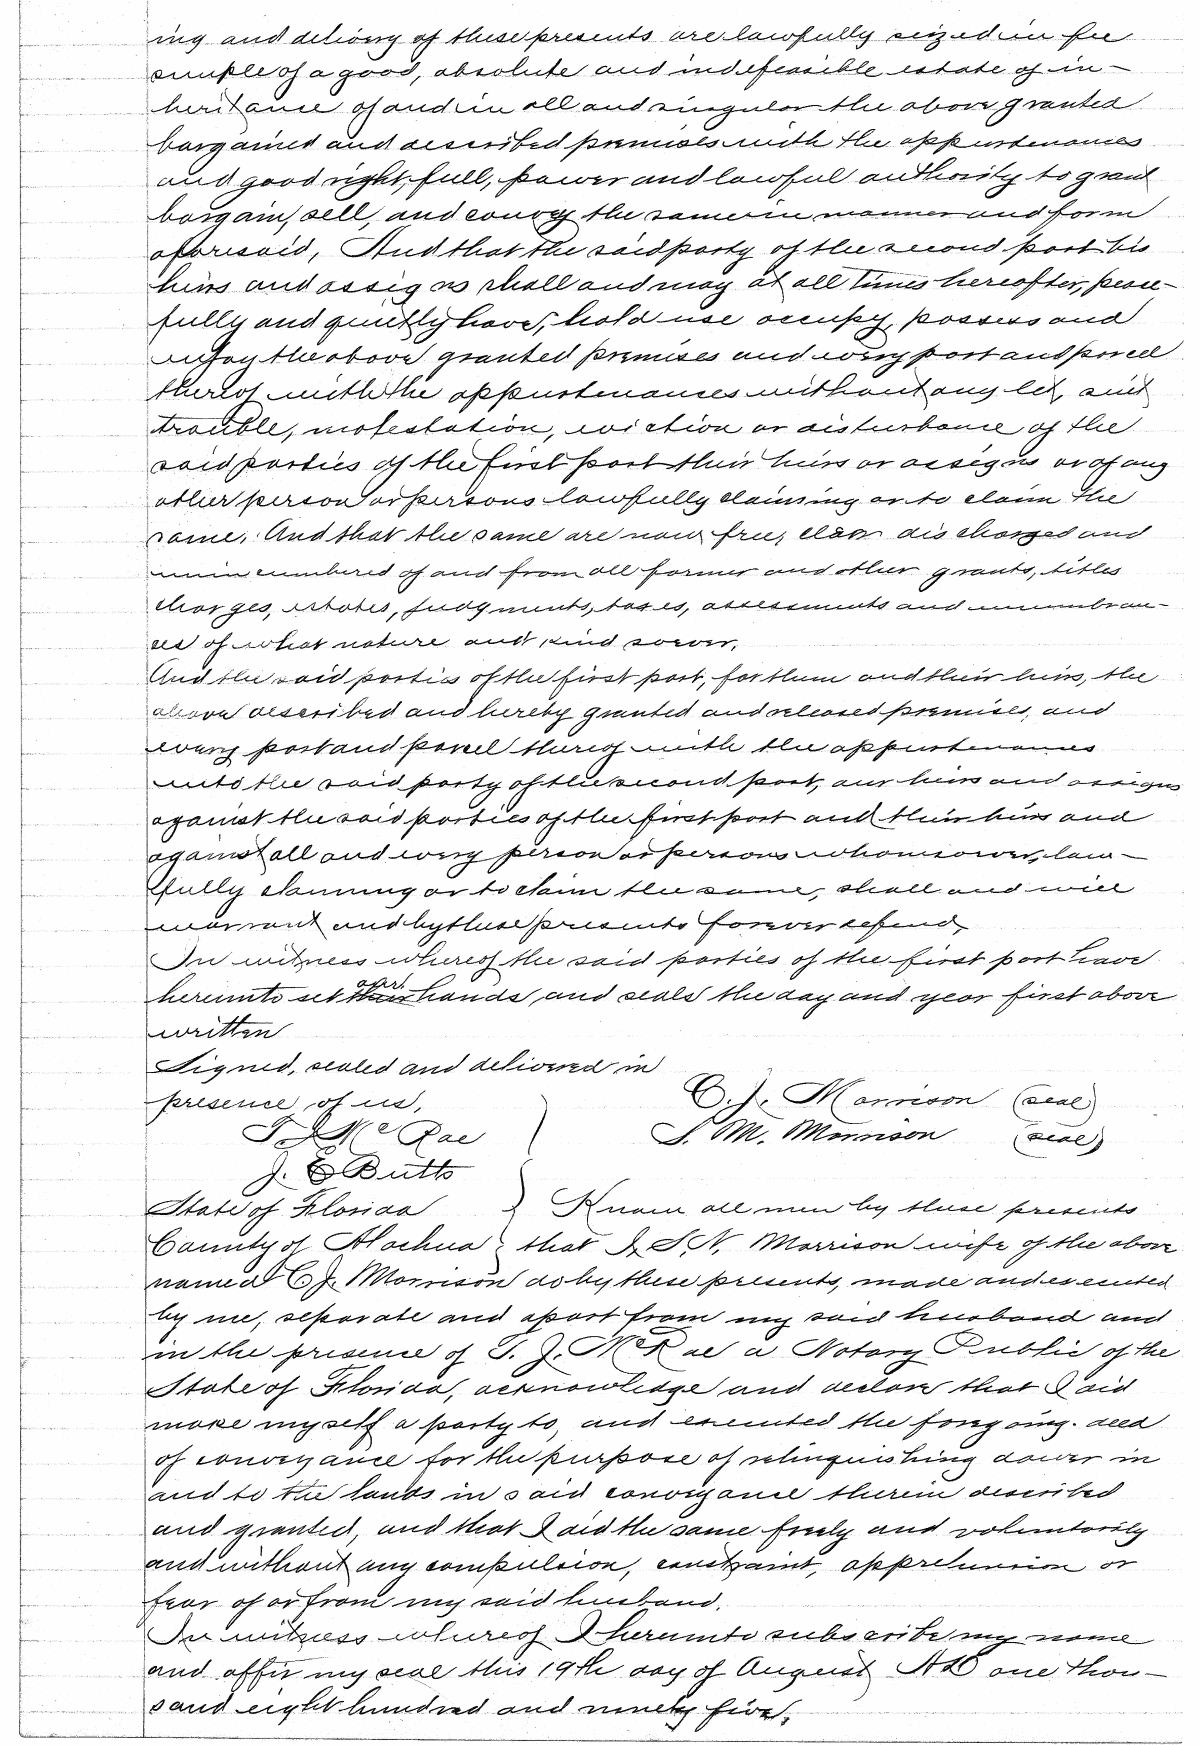 ing and delivery of these presents are lawfully seized in fee
simple of a good, absolute and indefeasible estate of in-
heritance of and in all and singular the above granted
bargained and described premises with the appurtenances
and good right, full, power and lawful authority to grant
bargain, sell, and convey the same in manner and form
aforesaid, And that the said party of the second part his
heirs and assigns shall and may at all times hereafter, peace-
fully and quietly have, hold use occupy, possess and
enjoy the above granted premises and every part and parcel
thereof with the appurtenances without any let, suit
trouble, molestation, eviction or disturbance of the
said parties of the first part their heirs or assigns or of any
other person or persons lawfully claiming or to claim the
same. And that the same are now free, clear discharged and
unincumbered of and from all former and other grants, titles
charges, estates, judgments, taxes, assessments and incumbran-
ces of what nature and kind soever,
And the said parties of the first part, for them and their heirs, the
above described and hereby granted and released premises, and
every part and parcel thereof with the appurtenances
unto the said party of the second part, our heirs and assigns
against the said parties of the first part and their heirs and
against all and every person or persons whomsoever, law-
fully claiming or to claim the same, shall and will
warrant and by these presents forever defend,
In witness whereof the said parties of the first part have
hereunto set their our hands and seals the day and year first above
written
Signed, sealed and delivered in
presence of us,
C. J. Morrison (seal)
T J McRae
S. M. Morrison (seal)
J. E Butts
State of Florida } Know all men by these presents
County of Alachua } that I, S. N. Morrison wife of the above
named C J. Morrison do by these presents, made and executed
by me, separate and apart from my said husband and
in the presence of T. J. McRae a Notary Public of the
State of Florida, acknowledge and declare that I did
make myself a party to, and executed the foregoing. deed
of conveyance for the purpose of relinquishing dower in
and to the lands in said conveyance therein described
and granted, and that I did the same freely and voluntarily
and without any compulsion, constraint, apprehension or
fear of or from my said husband.
In witness whereof I hereunto subscribe my name
and affix my seal this 19th day of August A D one thou-
sand eight hundred and ninety five,